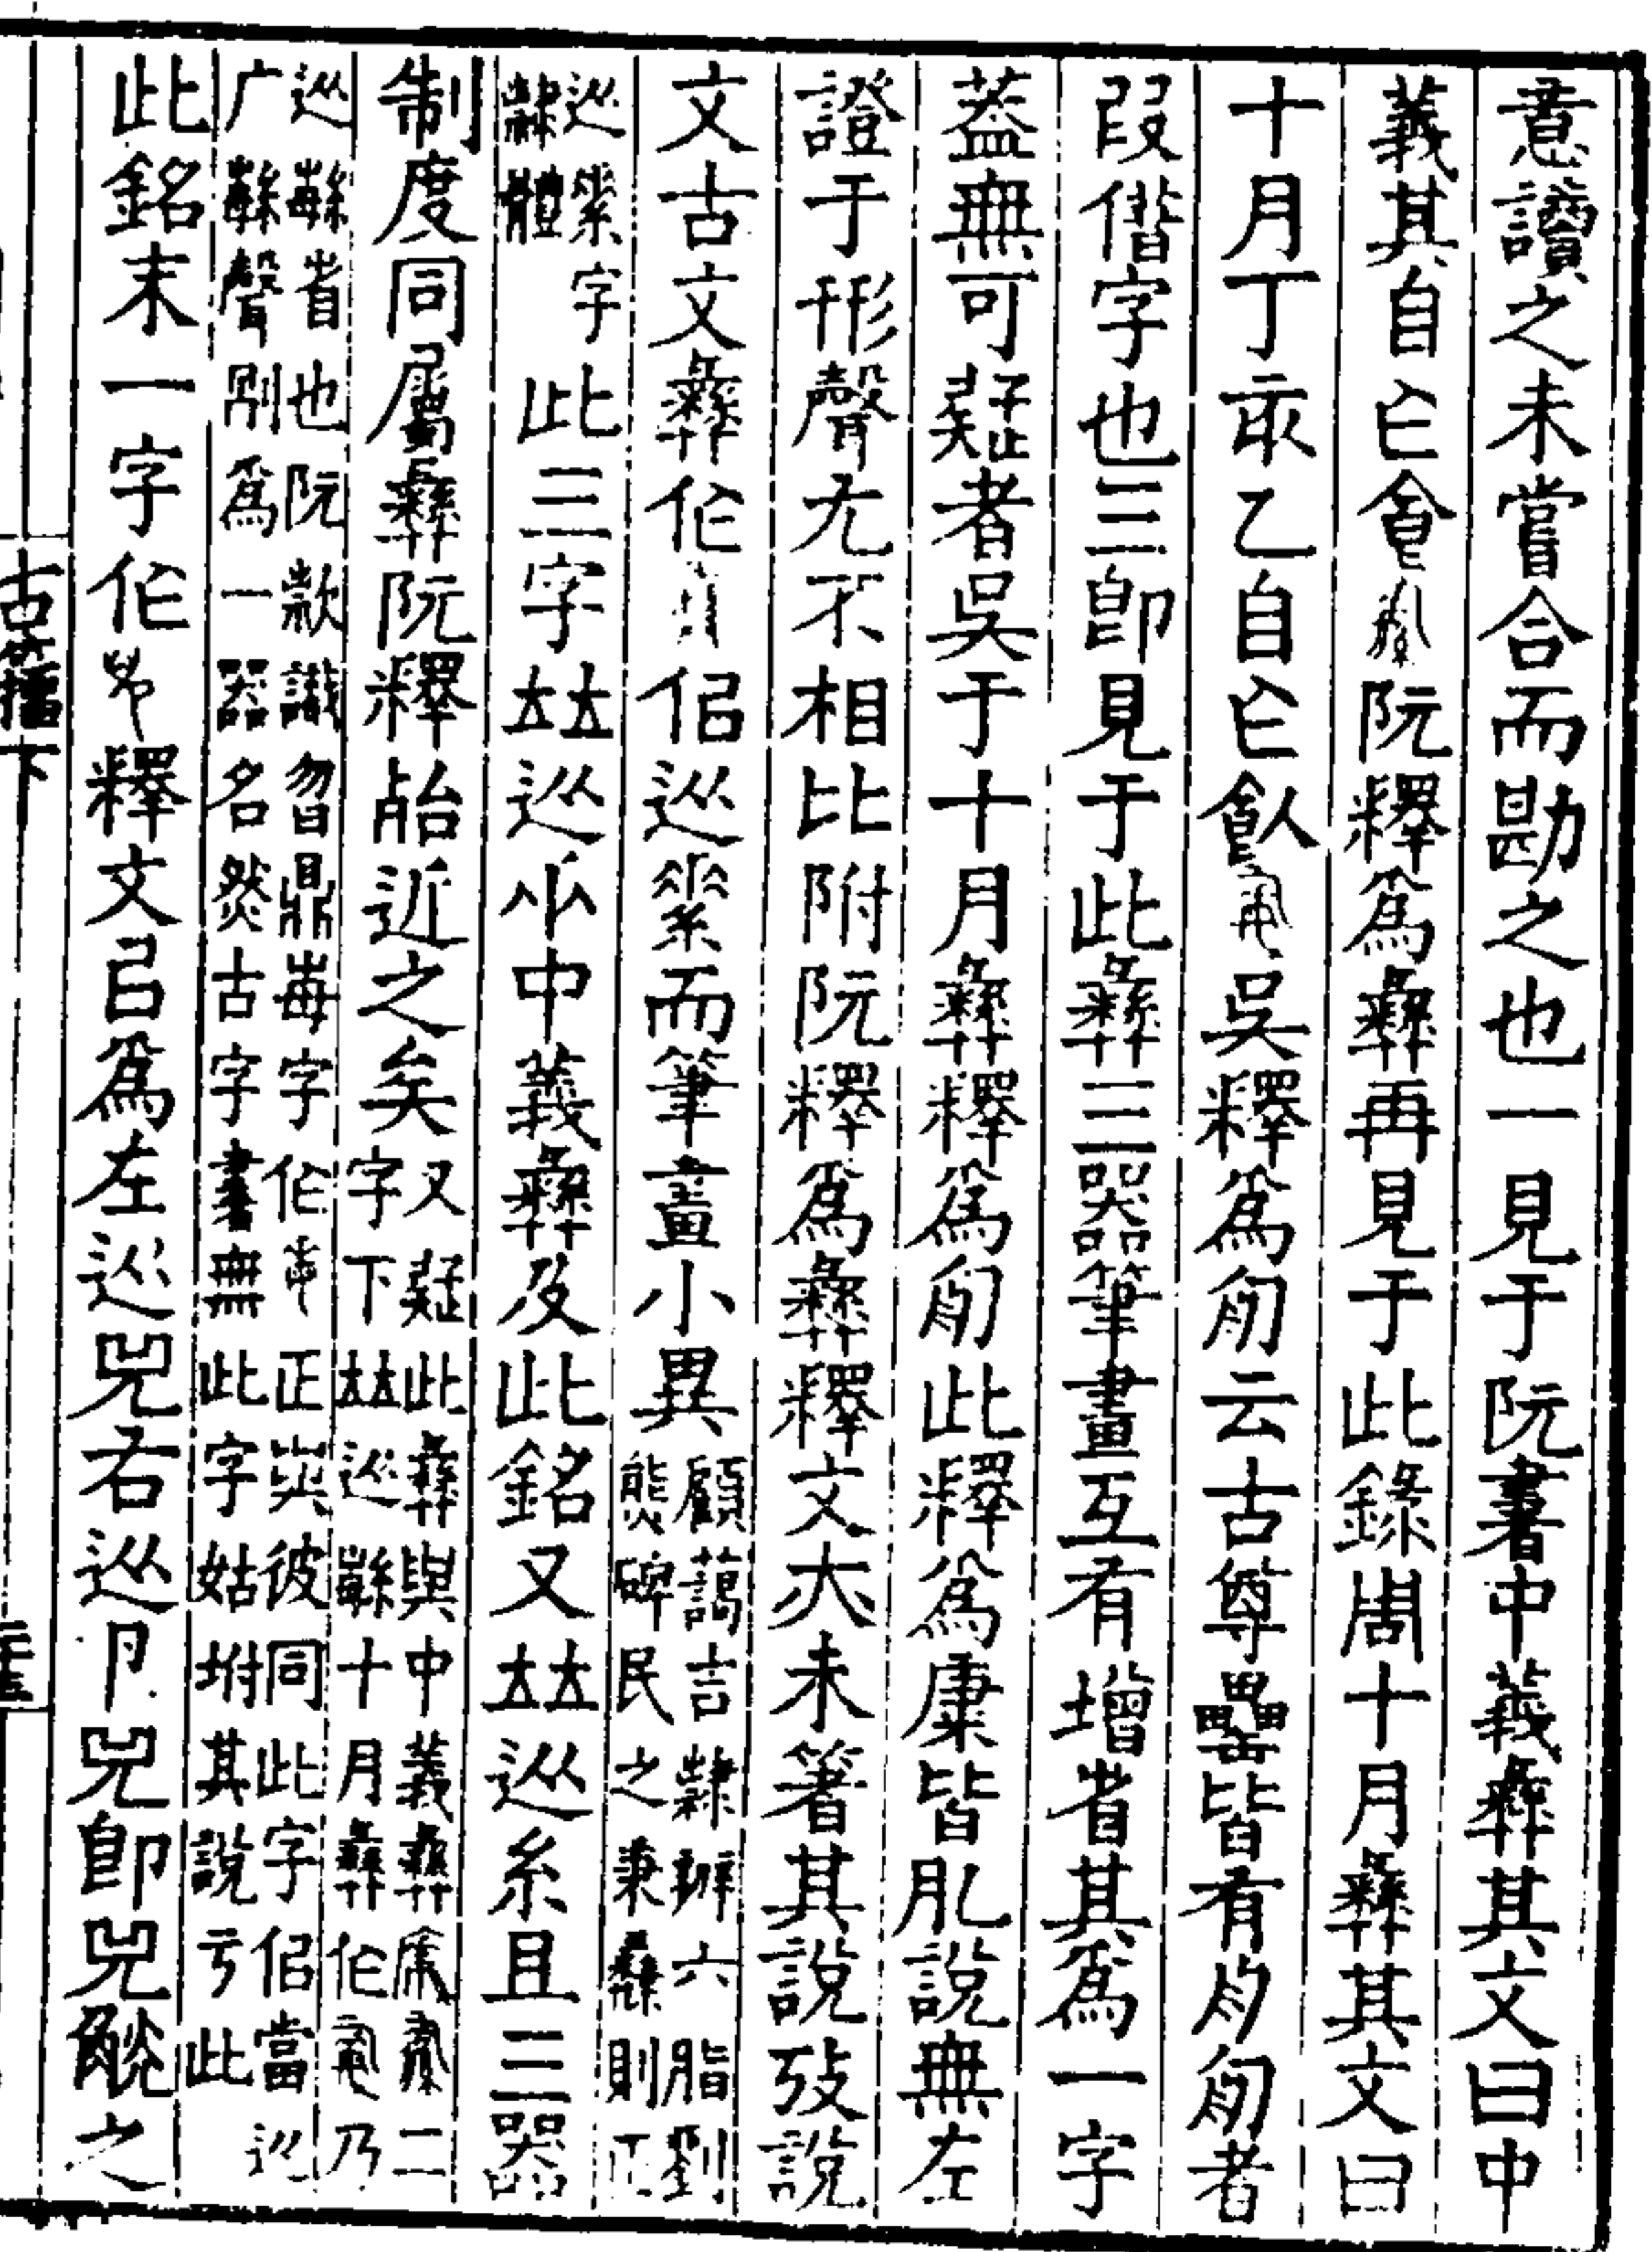 意讀之未嘗合而勘之也一見于阮書中義彝其文曰中
義其自乍會阮釋爲彝再見于此錄周十月彝其文曰
十月丁亥乙自乍飤吳釋爲㓝云古尊罍皆有者
叚借字也三卽見于此彝三器筆畫互有增省其爲一字
葢無可疑者吳于十月彝釋爲此釋爲廉皆肊說無左
證于形聲尤不相比附阮釋爲彝釋文亦未箸其說攷說
文古文彝作侣从絫而筆畫小異顧藹吉隸辨六脂劉
熊碑民之秉彝則正
从絫字
隸體此三字竝从小中義彝及此銘又竝从糸且三器
制度同屬彝阮釋詒近之矣又疑此彝與中義彝二
字下竝从緐十月彝作乃
从緐省也阮款識曶鼎每字作正與彼同此字侣當从
广緐聲別爲一器名然古字書無此字姑坿其說亏此
此銘末一字作釋文㠯爲左从兕右从卩兕卽兕觥之
古籀下